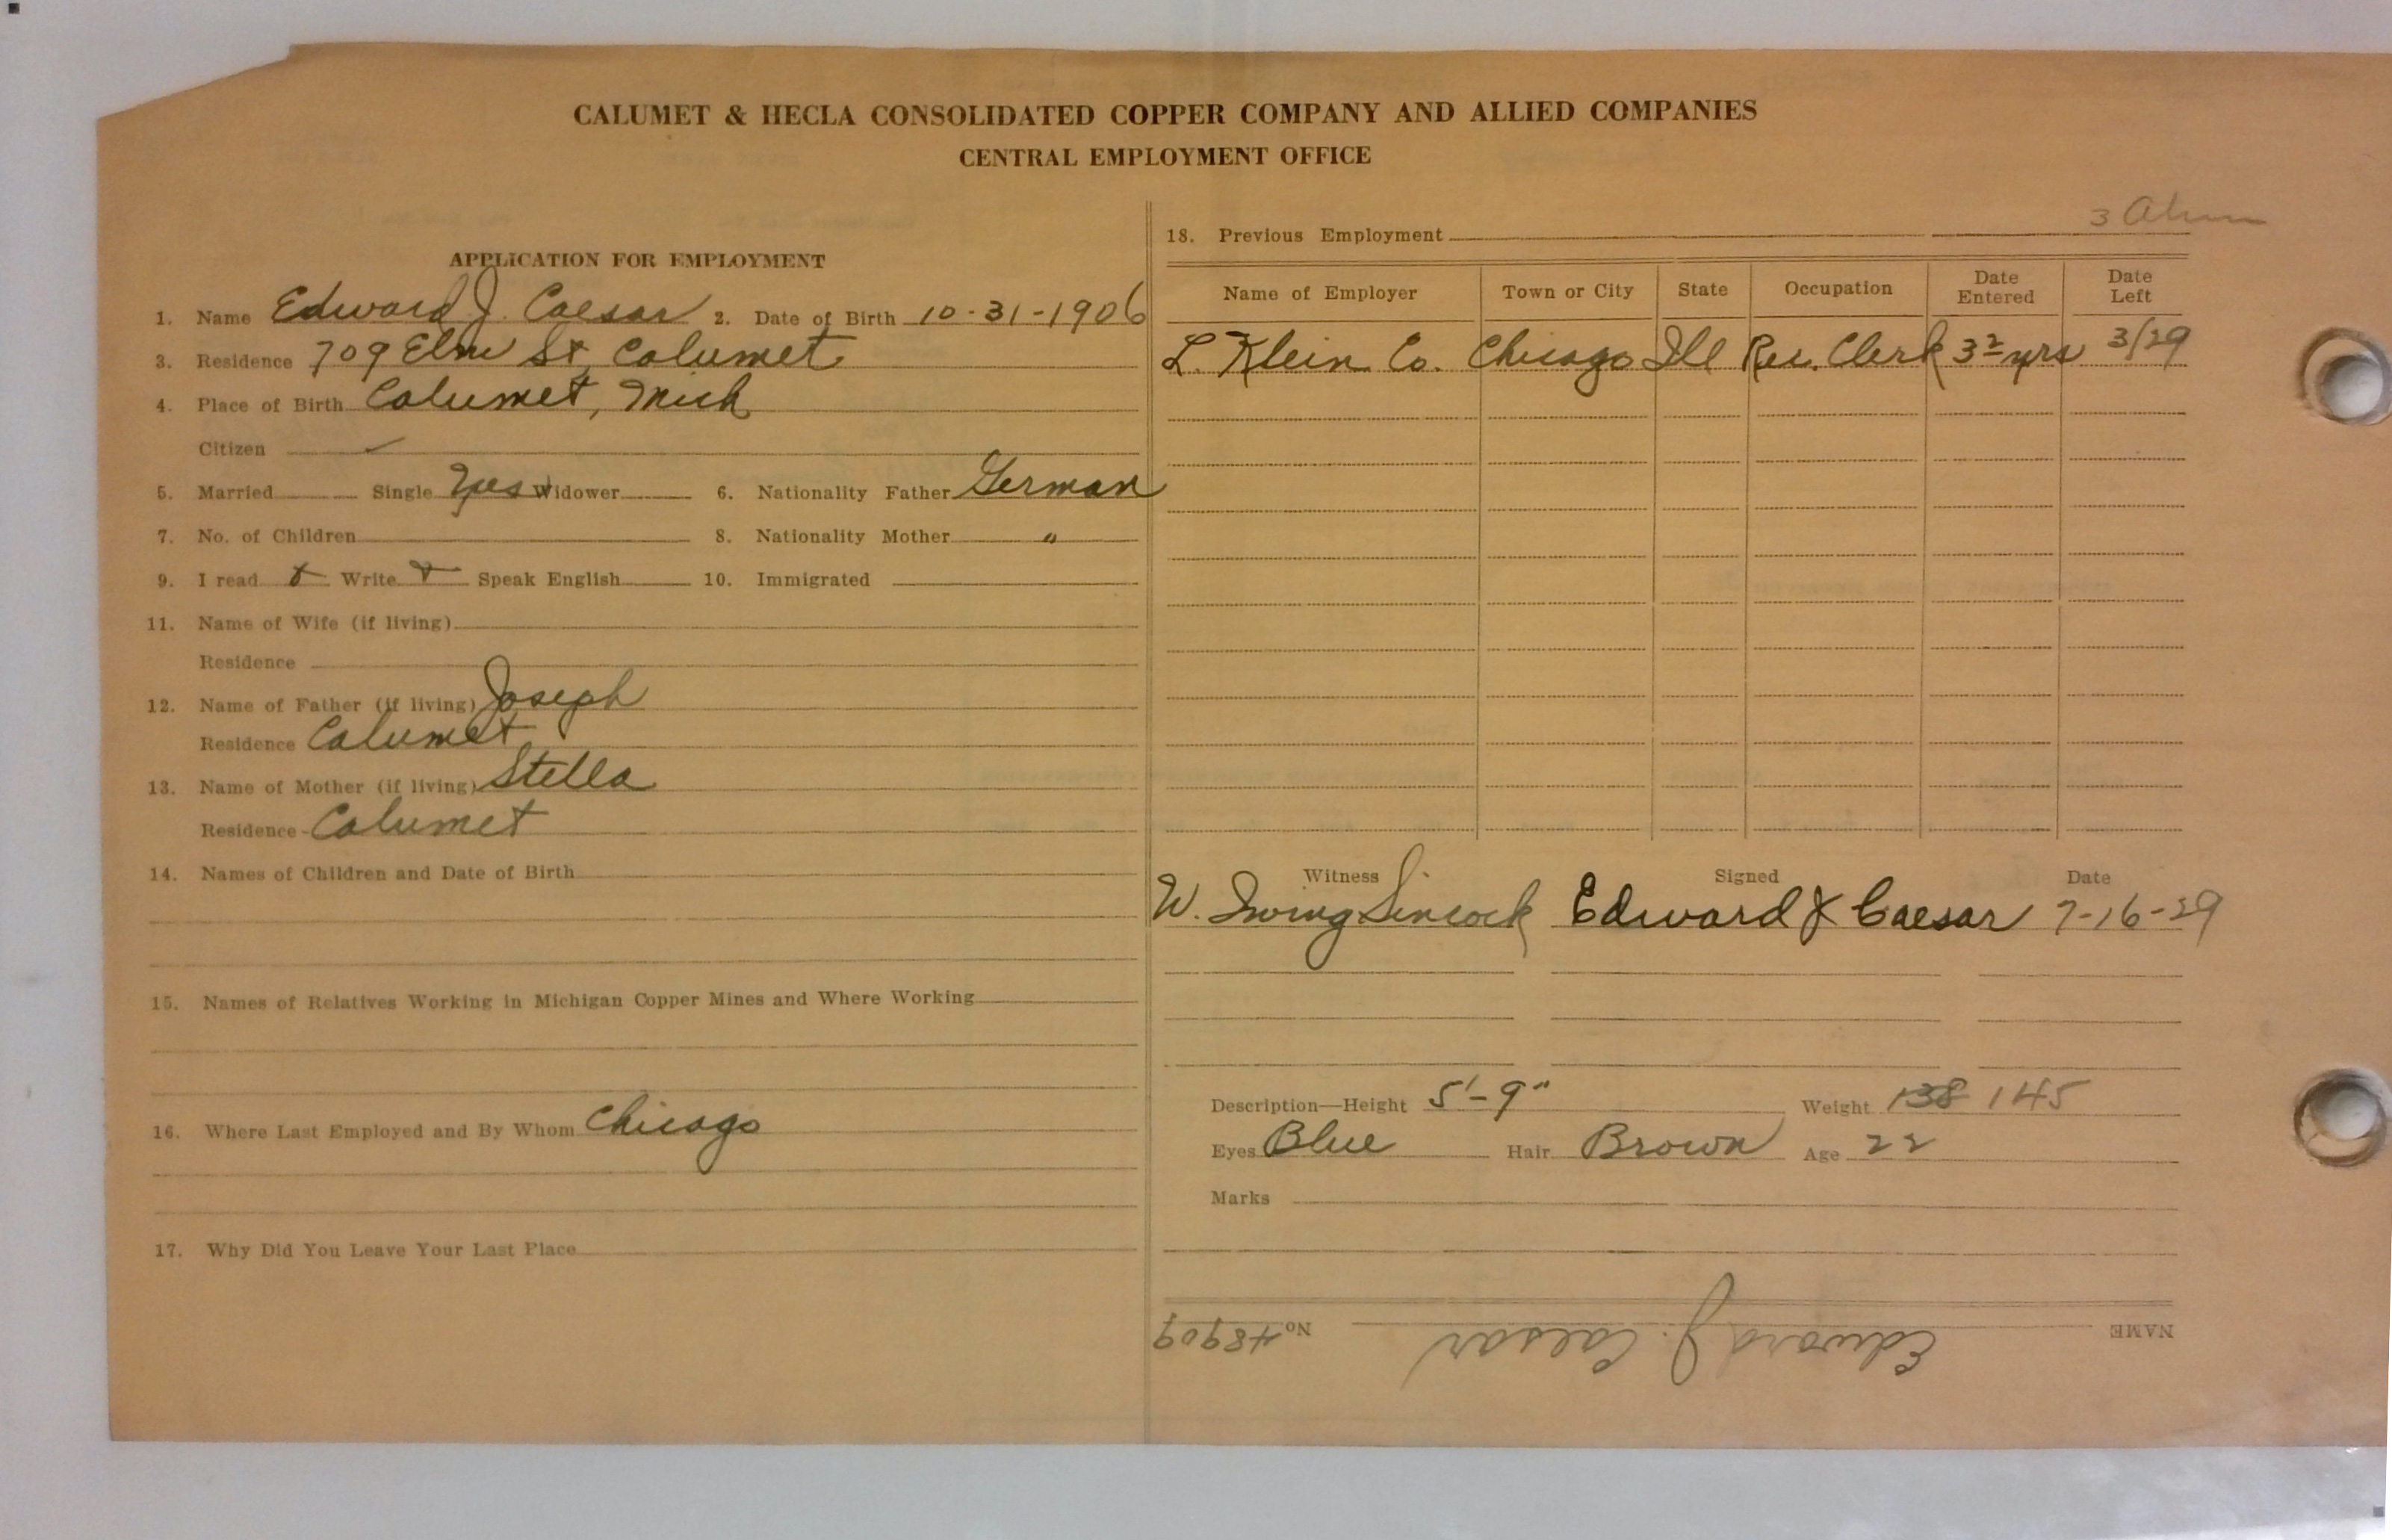 CALUMET & HECLA CONSOLIDATED COPPER COMPANY AND ALLIED COMPANIES
CENTRAL EMPLOYMENT OFFICE
APPLICATION FOR EMPLOYMENT
1. Name Edward J. Caesar 2. Date of Birth 10-31-1906
3. Residence 709 Elm St Calumet
4. Place of Birth Calumet, Mich
Citizen
5. Married Single Yes Widower 6. Nationality Father German
7. No. of Children 8. Nationality Mother "
9. I read Write Speak English 10. Immigrated
11. Name of Wife (if living)
Residence
12. Name of Father (if living) Joseph
Residence Calumet
13. Name of Mother (if living) Stella
Residence Calumet
14. Names of Children and Date of Birth
15. Names of Relatives Working in Michigan Copper Mines and Where Working
16. Where Last Employed and By Whom Chicago
17. Why Did You Leave Your Last Place
3
18. Previous Employment
Name of Employer Town or City State Occupation Date Entered Date Left
L. Klein Co. Chicago Ill Rec. Clerk yrs 3/29
Witness Signed Date
W. Irving Sincock Edward J Caesar 7-16-29
Description—Height 5'-9" Weight 138 145
Eyes Blue Hair Brown Age 22
Marks
NAME Edward J. Caesar No 48909